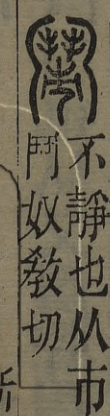 鬧
不靜也从市
鬥奴教切